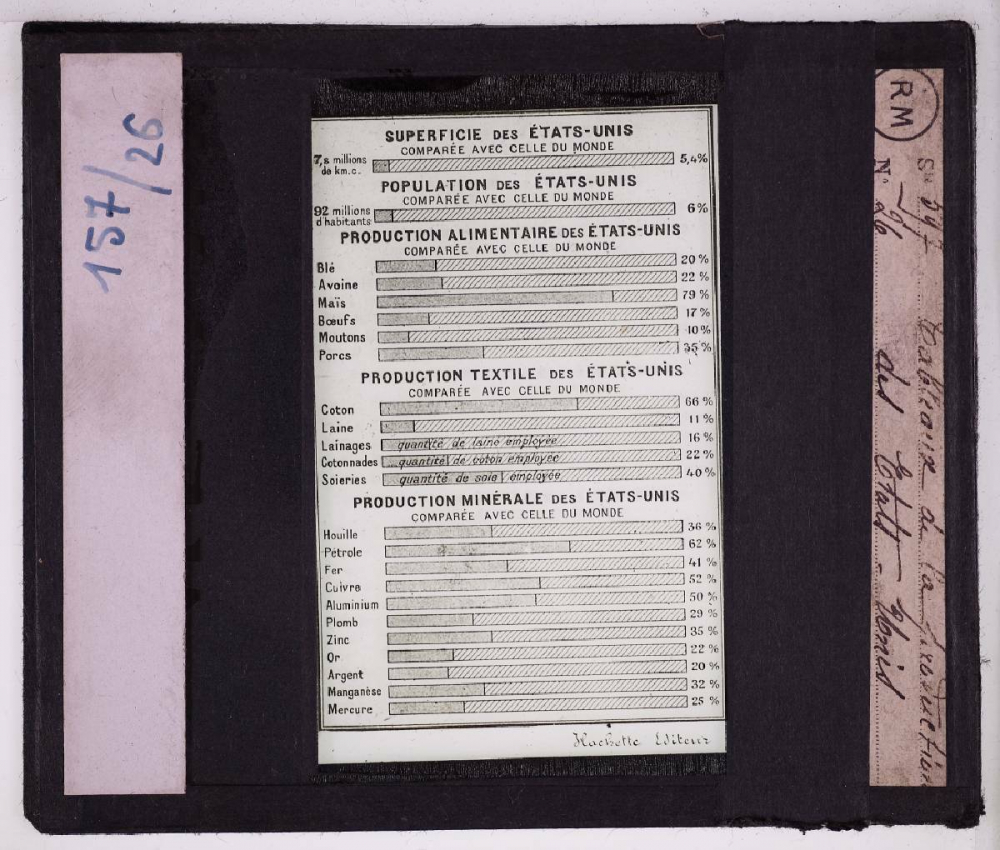 157/26
SUPERFICIE DES ÉTATS-UNIS
COMPARÉE AVEC CELLE DU MONDE
7,8 millions de km.c. 5,4%
POPULATION DES ÉTATS-UNIS
COMPARÉE AVEC CELLE DU MONDE
92 millions d'habitants 6%
PRODUCTION ALIMENTAIRE DES ÉTATS-UNIS
COMPARÉE AVEC CELLE DU MONDE
Blé 20 %
Avoine 22 %
Maïs 79 %
Bœufs 17 %
Moutons 10 %
Porcs 35 %
PRODUCTION TEXTILE DES ÉTATS-UNIS
COMPARÉE AVEC CELLE DU MONDE
Coton 66 %
Laine 11 %
Lainages quantité de laine employée 16 %
Cotonnades quantité de coton employée 22 %
Soieries quantité de soie employée 40 %
PRODUCTION MINÉRALE DES ÉTATS-UNIS
COMPARÉE AVEC CELLE DU MONDE
Houille 36 %
Pétrole 62 %
Fer 41 %
Cuivre 52 %
Aluminium 50 %
Plomb 29 %
Zinc 35 %
Or 22 %
Argent 20 %
Manganèse 32 %
Mercure 25 %
Hachette Editeur
RM
Tableaux de la production
des Etats-Unis